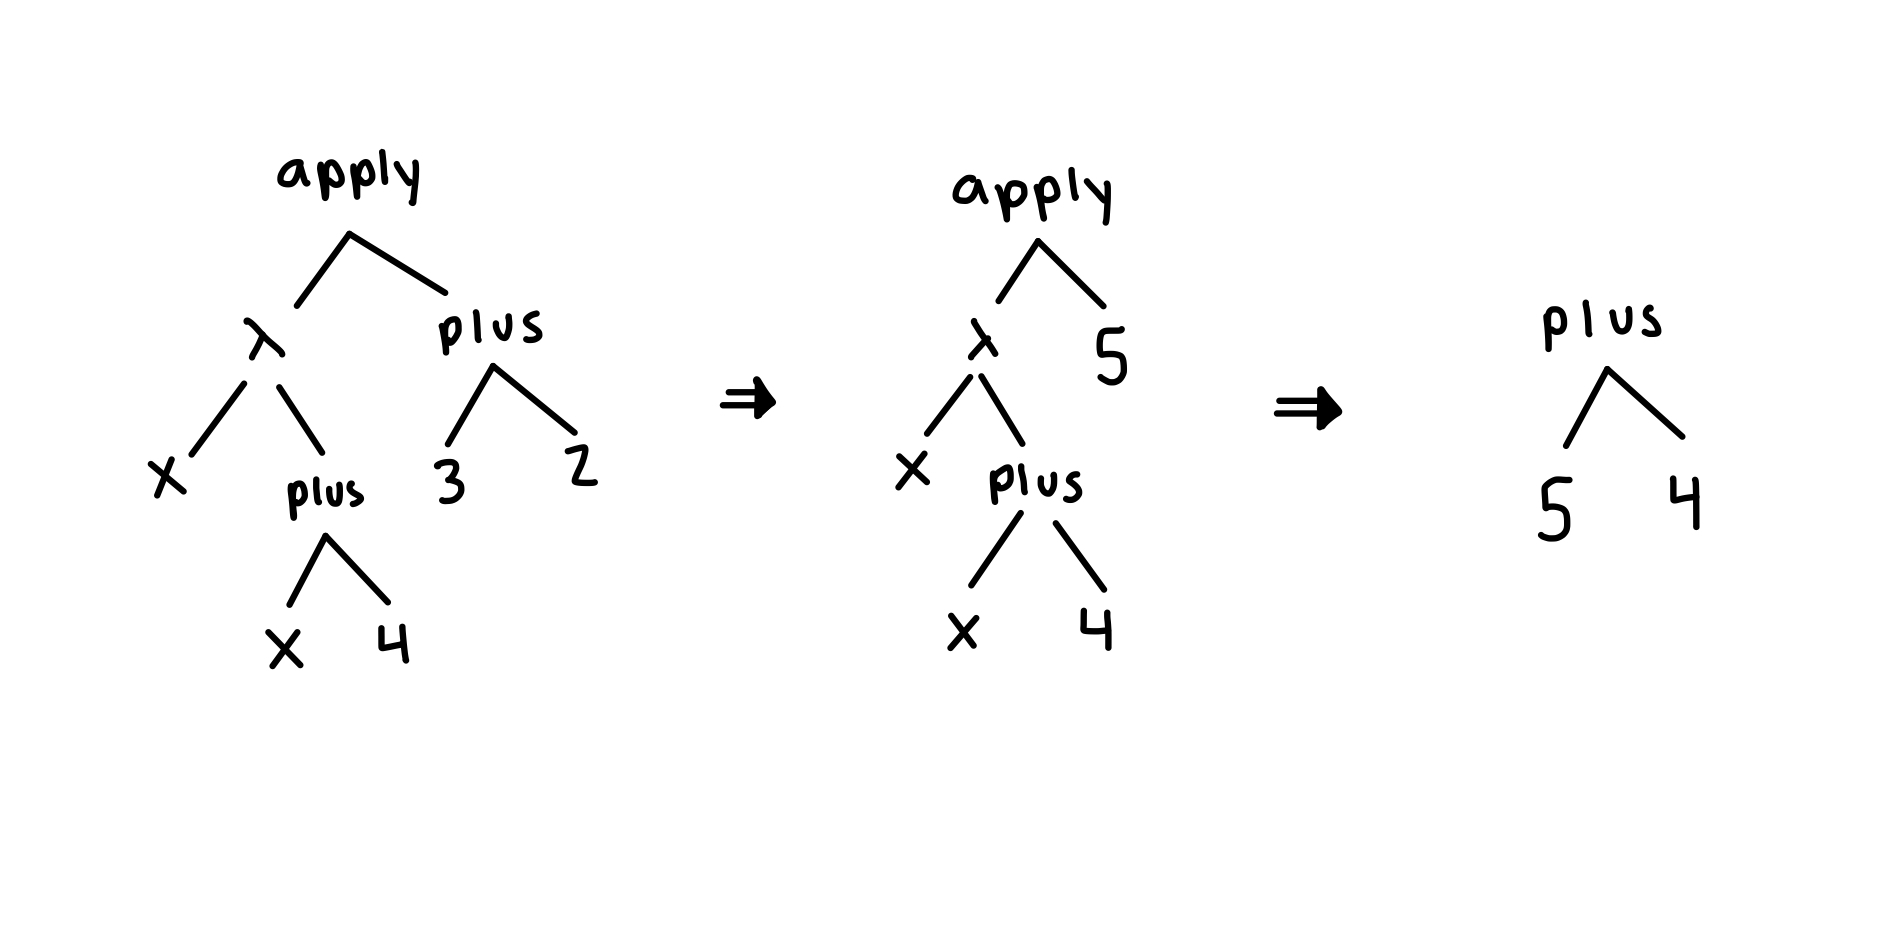 apply
λ plus
x plus 3 2
x 4
⇒
apply
λ 5
x plus
x 4
⇒
plus
5 4